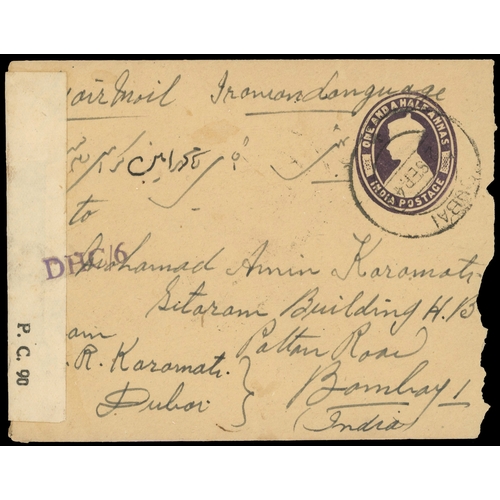 air Mail Iranian Language
ONE AND A HALF ANNAS
INDIA POSTAGE
SEP 4
DUBAI
to
DHC/6
Mohamad Amin Karamati
Sitaram Building H.B
Patton Road
Bombay 1
(India)
P. C. 90
R. Karamati
Dubai